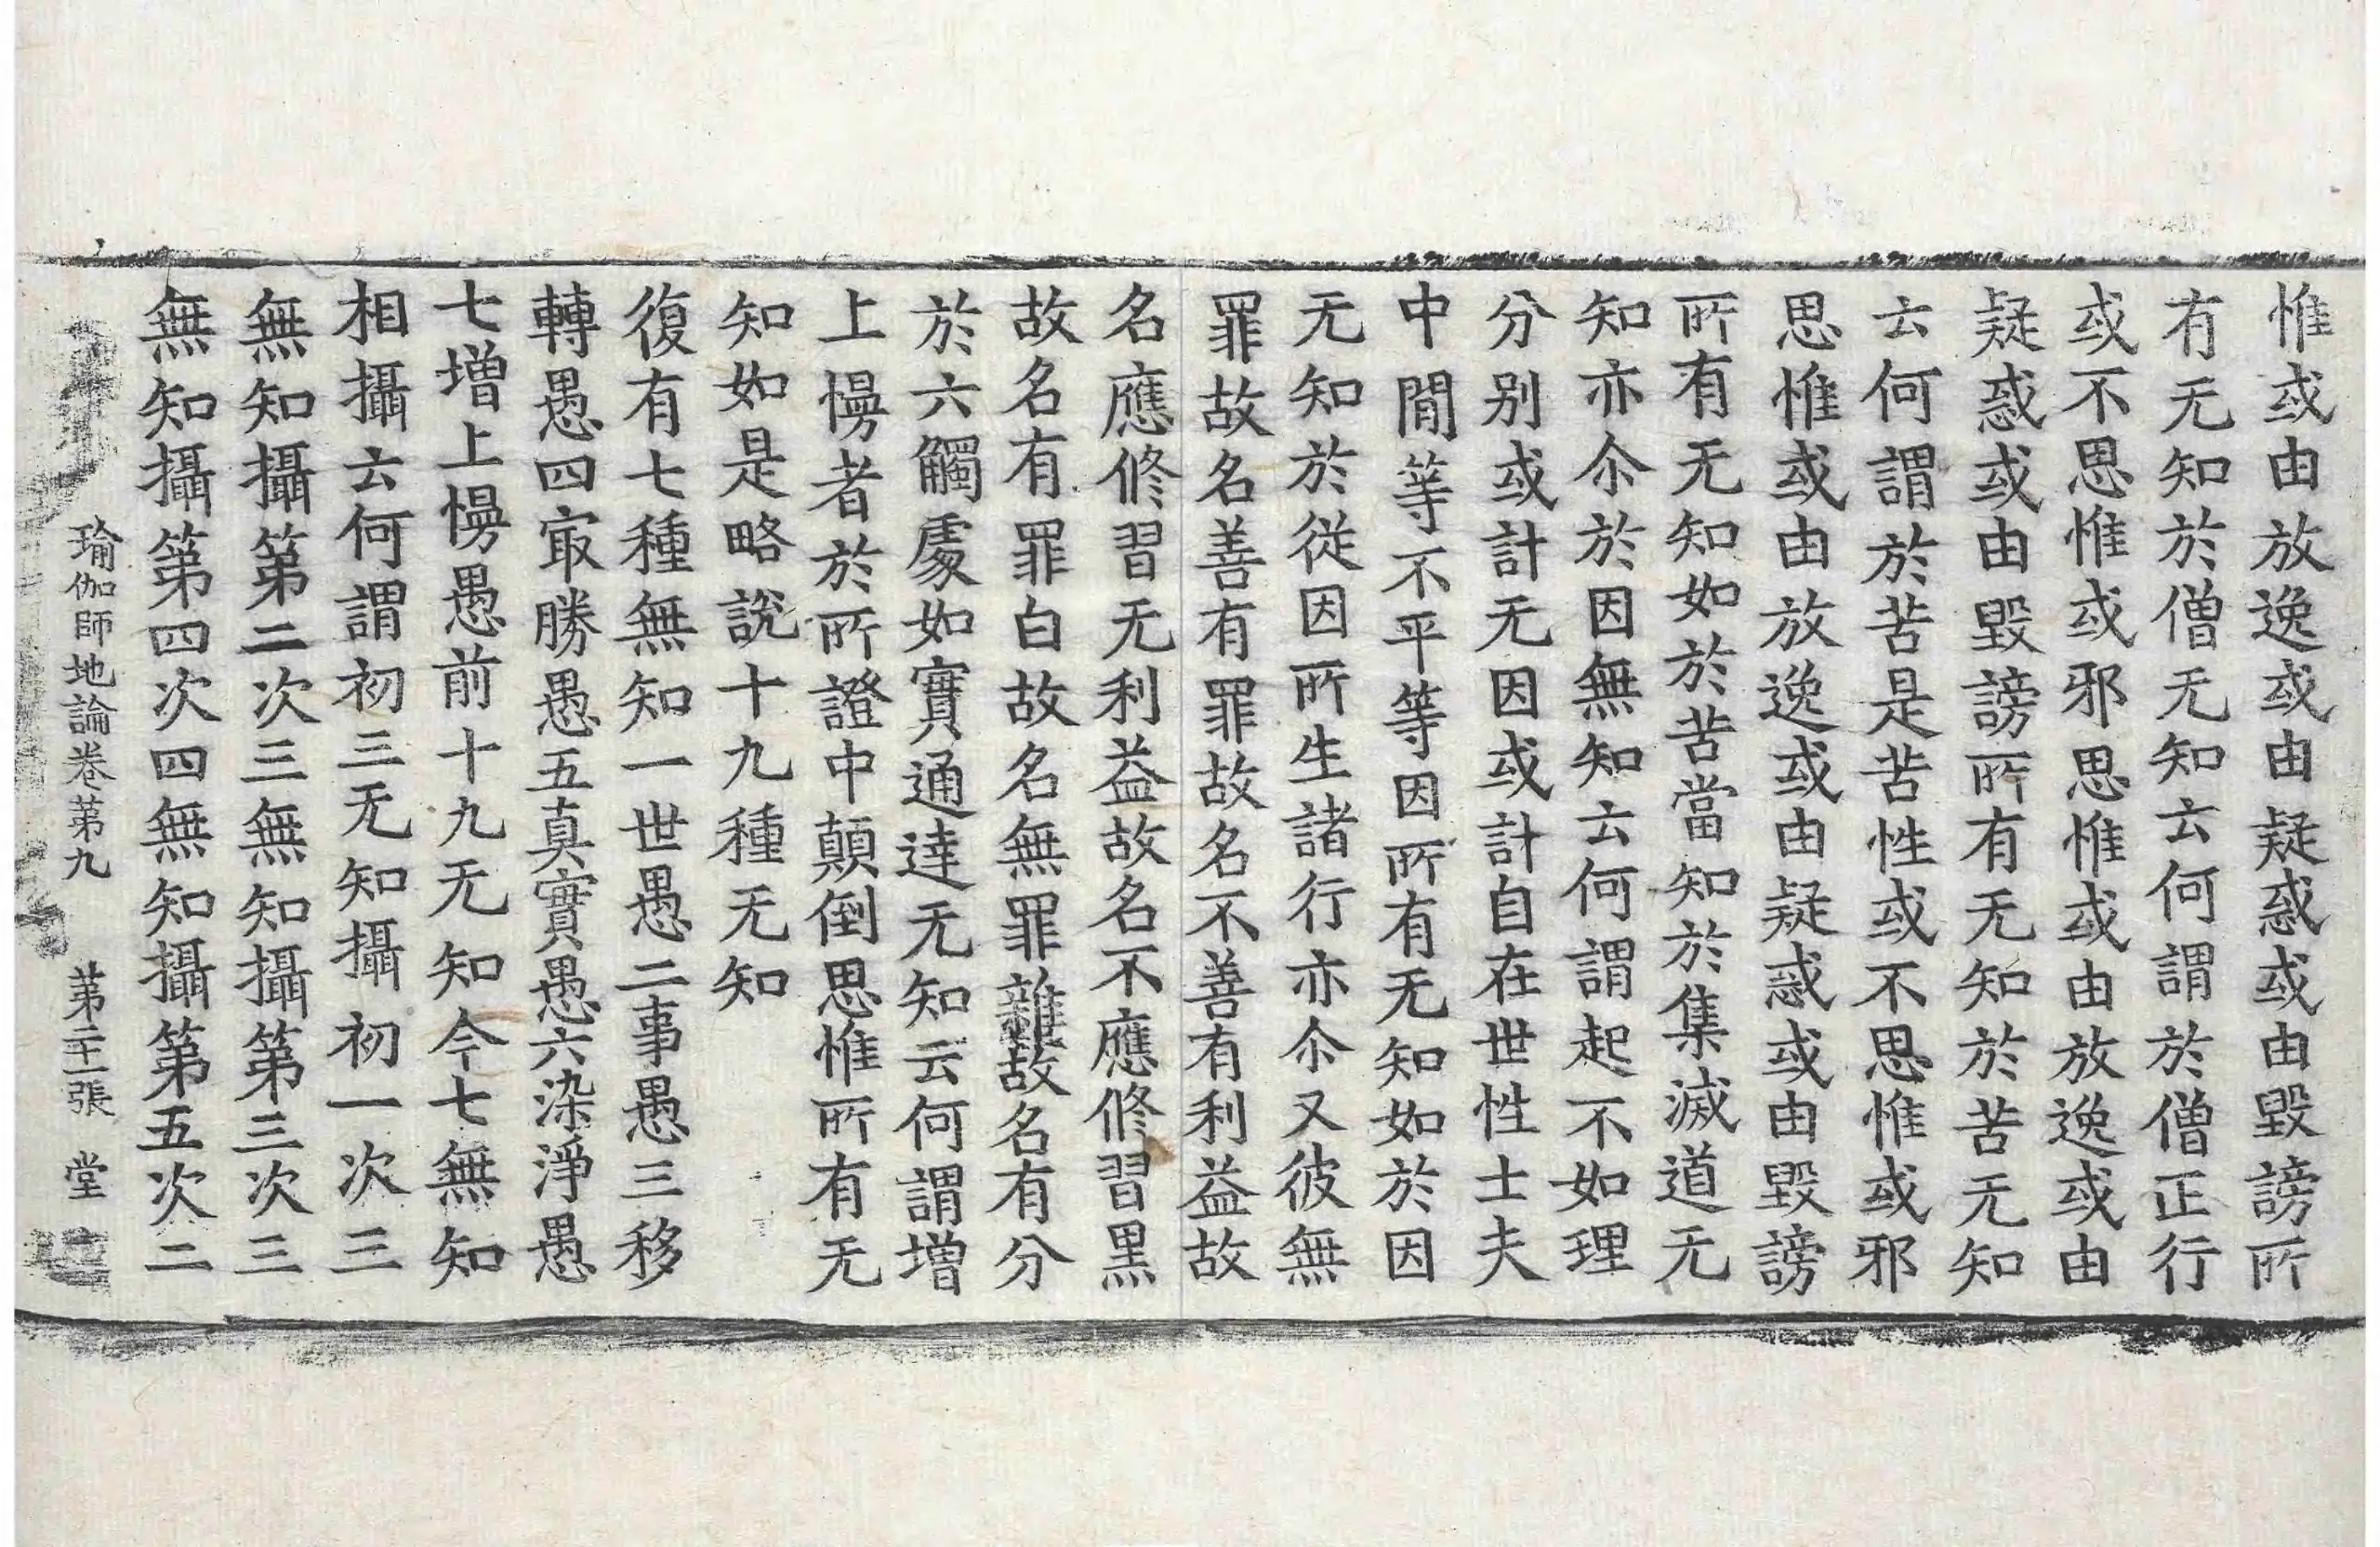 惟或由放逸或由疑惑或由毀謗所
有无知於僧无知云何謂於僧正行
或不思惟或邪思惟或由放逸或由
疑惑或由毀謗所有无知於苦无知
云何謂於苦是苦性或不思惟或邪
思惟或由放逸或由疑惑或由毀謗
所有无知如於苦當知於集滅道无
知亦尒於因無知云何謂起不如理
分别或計无因或計自在世性士夫
中間等不平等因所有无知如於因
无知於從因所生諸行亦尒又彼無
罪故名善有罪故名不善有利益故
名應修習无利益故名不應修習黑
故名有罪白故名無罪雜故名有分
於六觸處如實通達无知云何謂增
上慢者於所證中顛倒思惟所有无
知如是略說十九種无知
復有七種無知一世愚二事愚三移
轉愚四冣勝愚五真實愚六染淨愚
七增上慢愚前十九无知今七無知
相攝云何謂初三无知攝初一次三
無知攝第二次三無知攝第三次三
無知攝第四次四無知攝第五次二
瑜伽師地論卷第九 第二十一張 堂